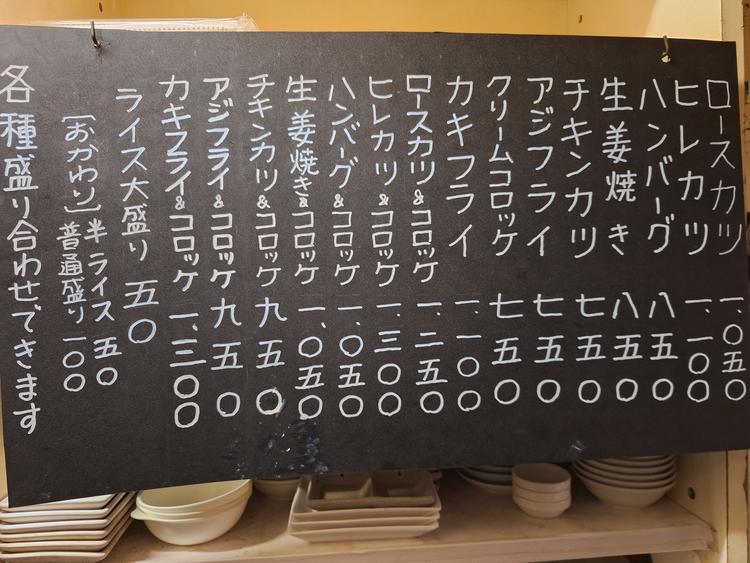 ロースカツ 一、〇五〇
ヒレカツ 一、一〇〇
ハンバーグ 八五〇
生姜焼き 八五〇
チキンカツ 七五〇
アジフライ 七五〇
クリームコロッケ 七五〇
カキフライ 一、一〇〇
ロースカツ&コロッケ 一、二五〇
ヒレカツ&コロッケ 一、三〇〇
ハンバーグ&コロッケ 一、〇五〇
生姜焼き&コロッケ 一、〇五〇
チキンカツ&コロッケ 九五〇
アジフライ&コロッケ 九五〇
カキフライ&コロッケ 一、三〇〇
ライス大盛り 五〇
[おかわり] 半ライス 五〇
普通盛り 一〇〇
各種盛り合わせできます